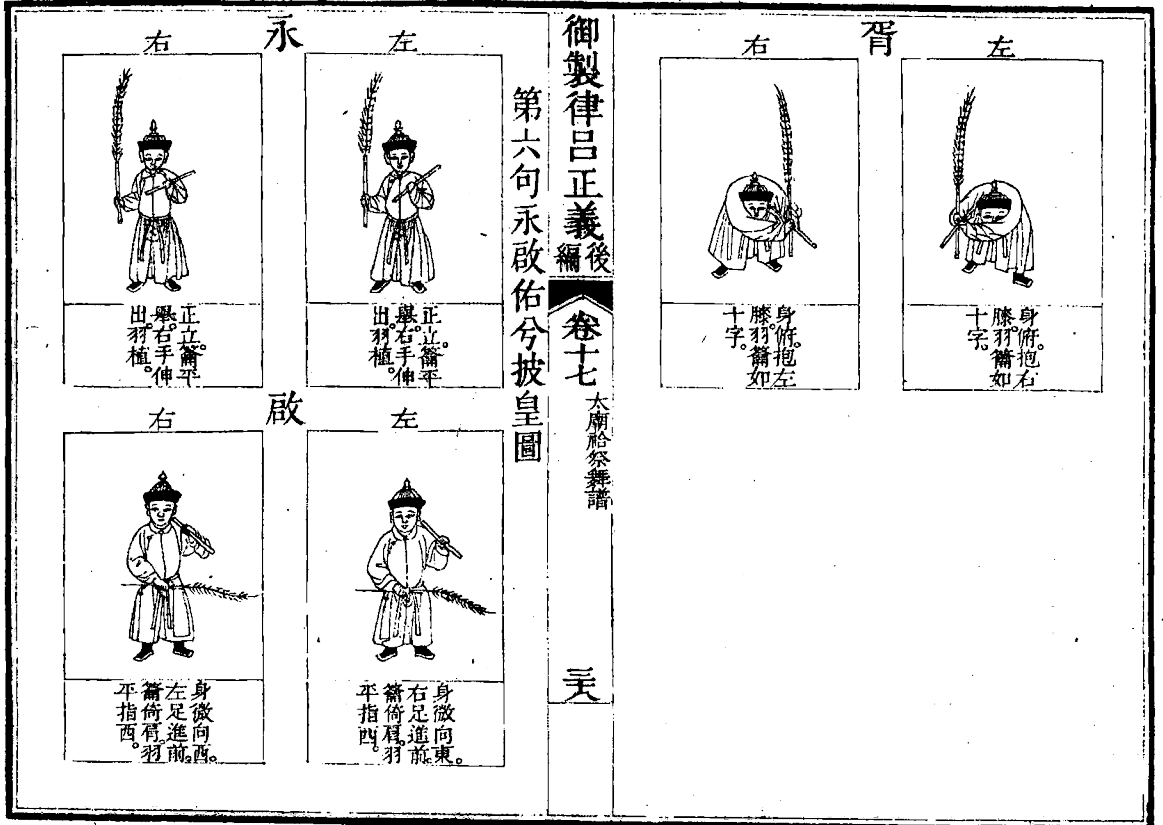 胥
左
身俯。抱右
膝。羽籥如
十字。
右
身俯。抱左
膝。羽籥如
十字。
御製律呂正義後編
卷十七
太廟祫祭舞譜
二十八
第六句永啟佑兮披皇圖
永
左
正立。籥平
舉。右手伸
出。羽植。
右
正立。籥平
舉。右手伸
出。羽植。
啟
左
身微向東。
右足進前。
籥倚肩。羽
平指西。
右
身微向西。
左足進前。
籥倚肩。羽
平指西。